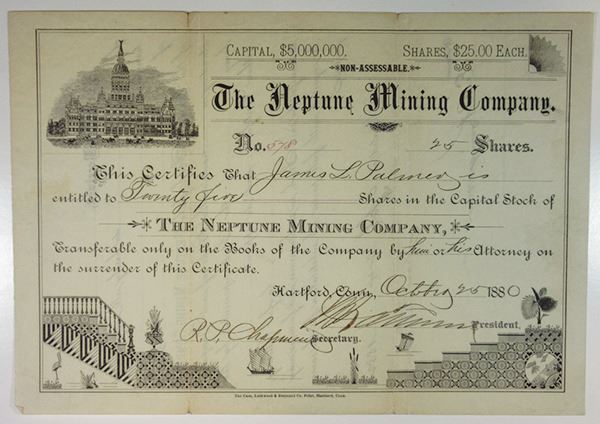 CAPITAL, $5,000,000. SHARES, $25.00 EACH.
NON-ASSESSABLE.
The Neptune Mining Company.
No. 578 25 Shares.
This Certifies That James L. Palmer is
entitled to Twenty five Shares in the Capital Stock of
THE NEPTUNE MINING COMPANY,
Transferable only on the Books of the Company by him or his Attorney on
the surrender of this Certificate.
Hartford, Conn, October 25 1880
President,
R. P. Chapman Secretary.
The Case, Lockwood & Brainard Co. Print, Hartford, Conn.